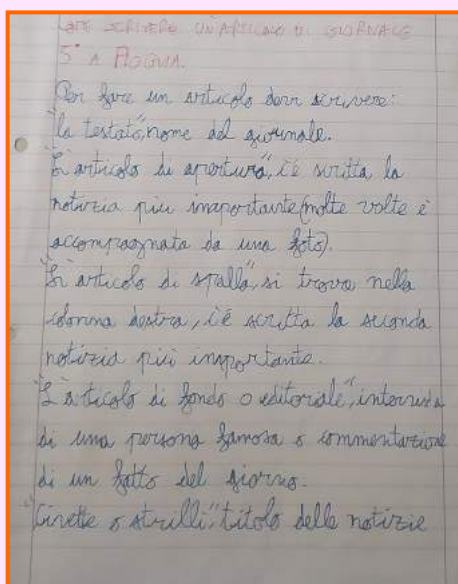 COME SCRIVERE UN ARTICOLO DI GIORNALE
5° A
Per fare un articolo devi scrivere:
"la testata", nome del giornale.
"L'articolo di apertura", c'è scritta la
notizia più importante (molte volte è
accompagnata da una foto).
"L'articolo di spalla", si trova nella
colonna destra, c'è scritta la seconda
notizia più importante.
"L'articolo di fondo o editoriale", intervista
di una persona famosa o commentazione
di un fatto del giorno.
"Civette o strilli", titolo delle notizie